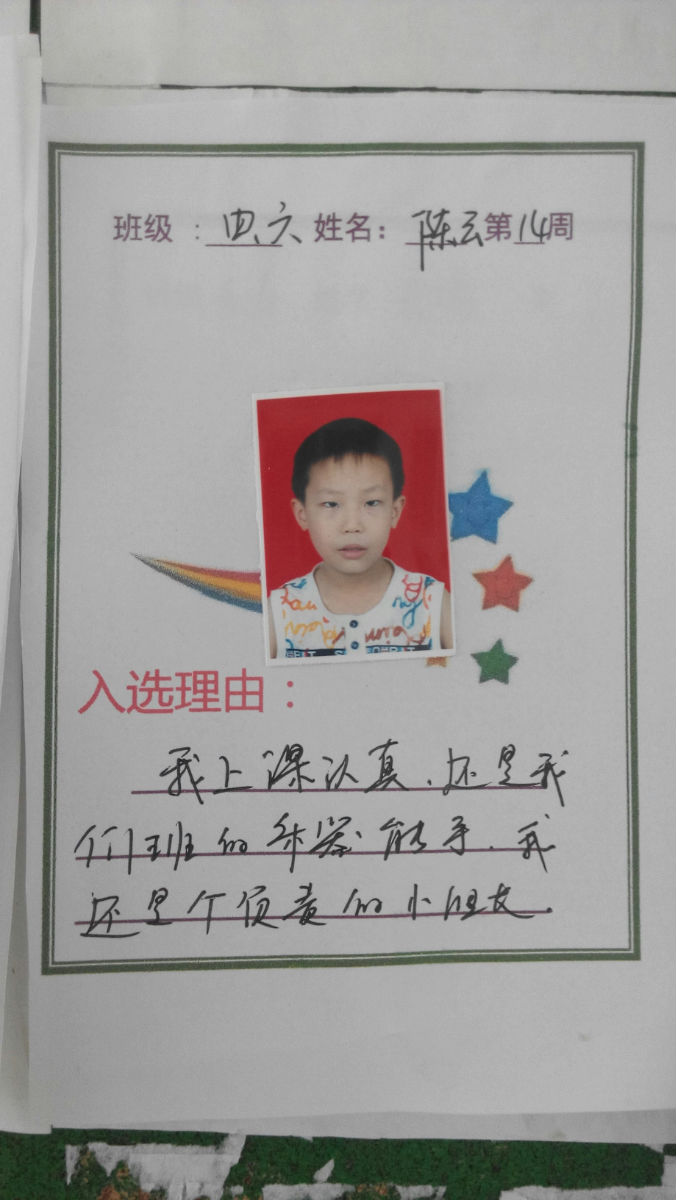 班级：四、六 姓名：陈云第14周
入选理由：
我上课认真、还是我
们班的乐器能手、我
还是个负责的小组长.